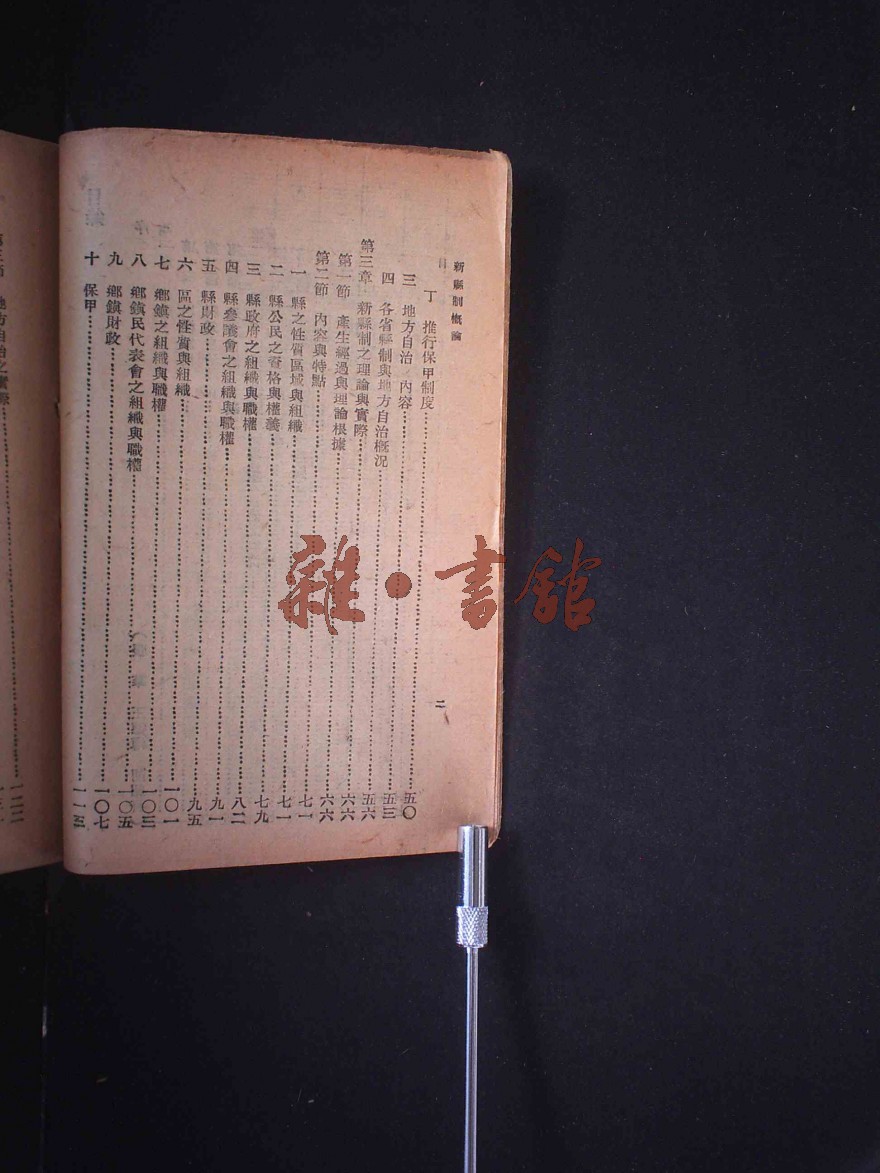 新縣制概論
目
二
丁 推行保甲制度……五〇
三 地方自治 內容……五三
四 各省縣制與地方自治概況……五六
第三章 新縣制之理論與實際……六六
第一節 產生經過與理論根據……六六
第二節 內容與特點……七一
一 縣之性質區域與組織……七一
二 縣公民之資格與權義……七九
三 縣政府之組織與職權……八二
四 縣參議會之組織與職權……九一
五 縣財政……九五
六 區之性質與組織……一〇一
七 鄉鎮之組織與職權……一〇三
八 鄉鎮民代表會之組織與職權……一〇五
九 鄉鎮財政……一〇七
十 保甲……一一三
地方自治之實際
雜·書館